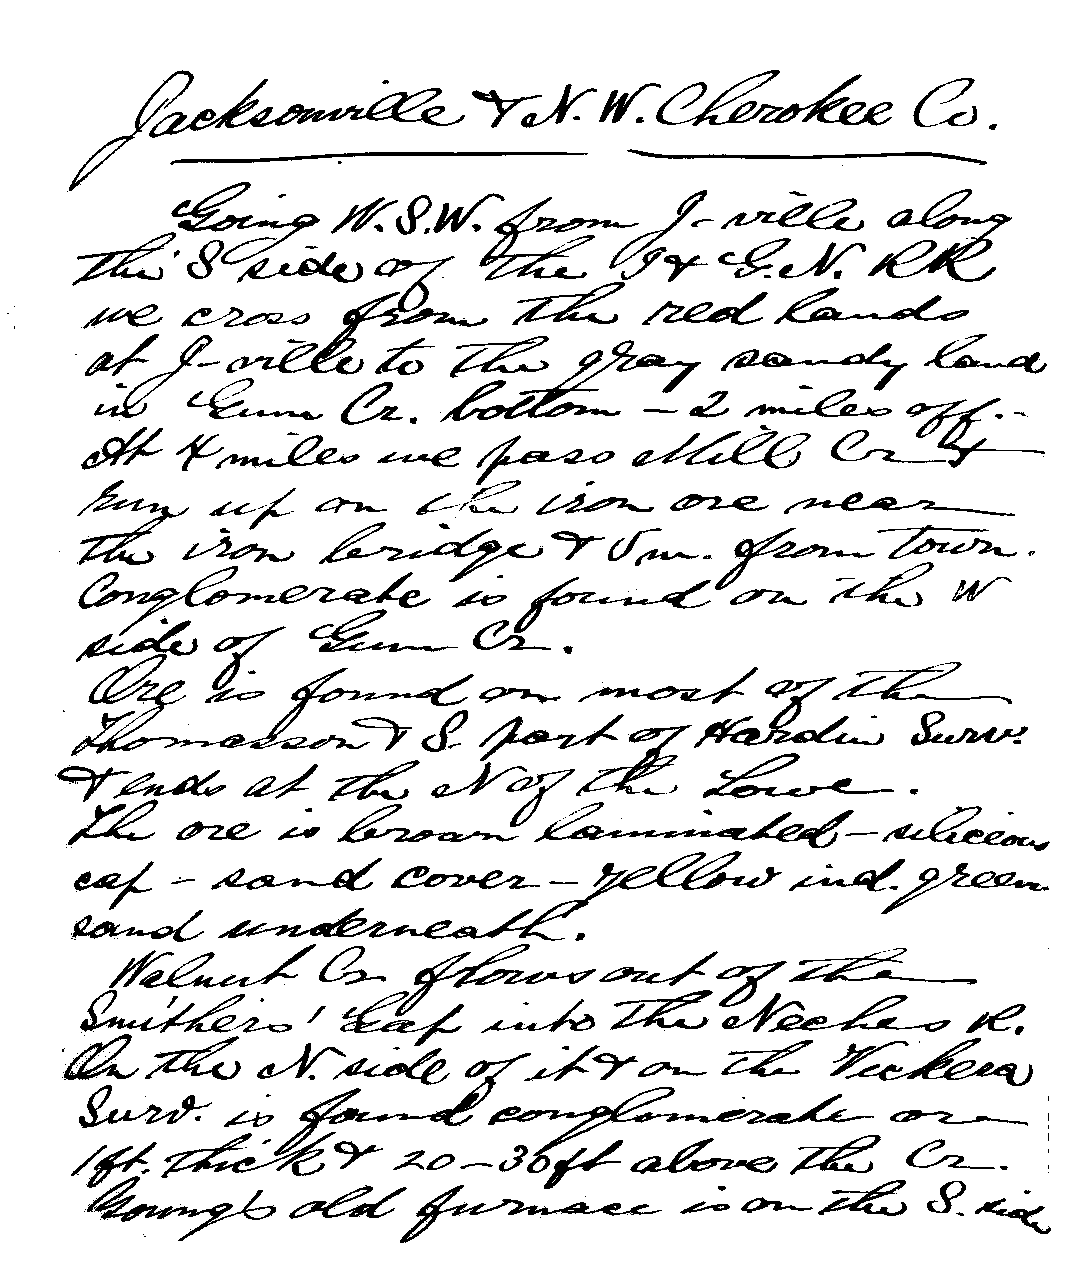 Jacksonville & N. W. Cherokee Co.
Going W. S. W. from J-ville along
the S side of the I & G. N. RR
we cross from the red lands
at J-ville to the gray sandy land
in Gum Cr. bottom - 2 miles off.-
At 4 miles we pass Mill Cr &
run up on the iron ore near
the iron bridge & 5 m. from town.
Conglomerate is found on the W
side of Gum Cr.
Ore is found on most of the
Thomasson & S. part of Hardin Surv.
& ends at the N of the Lowe.
The ore is brown laminated - silicious
cap - sand cover - yellow ind. green
sand underneath.
Walnut Cr flows out of the
Smithers' Gap into the Neches R.
On the N. side of it & on the Vickers
Surv. is found conglomerate ore
1 ft. thick & 20 - 30 ft above the Cr.
Young's old furnace is on the S. side